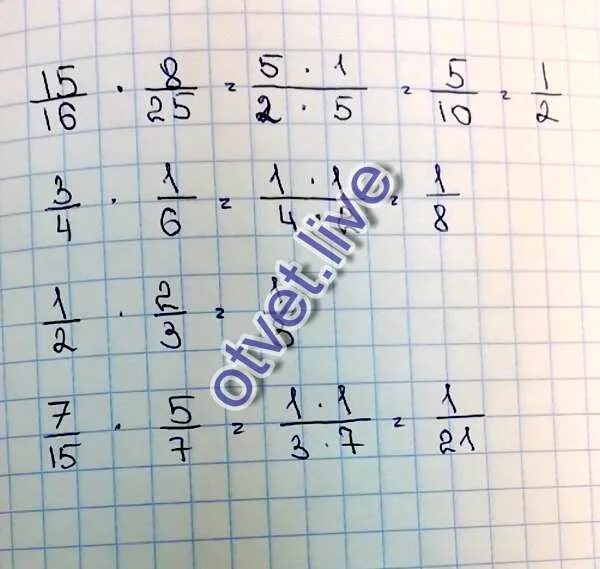 15/16 · 8/25 = 5 · 1 / 2 · 5 = 5/10 = 1/2
3/4 · 1/6 = 1 · 1 / 4 · = 1/8
1/2 · 2/3 =
7/15 · 5/7 = 1 · 1 / 3 · 7 = 1/21
otvet.live